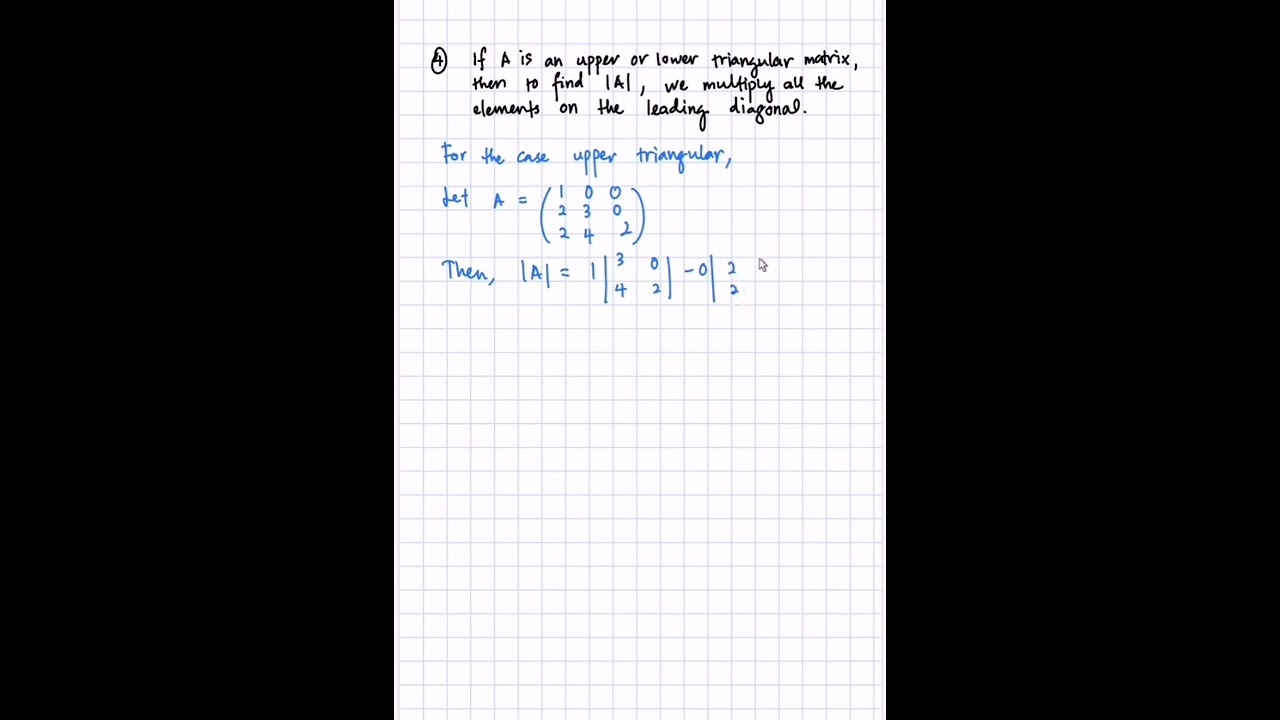 ④ If A is an upper or lower triangular matrix,
then to find |A|, we multiply all the
elements on the leading diagonal.
For the case upper triangular,
Let A = ( 1 0 0
2 3 0
2 4 2 )
Then, |A| = 1 | 3 0 | - 0 | 2
4 2 2